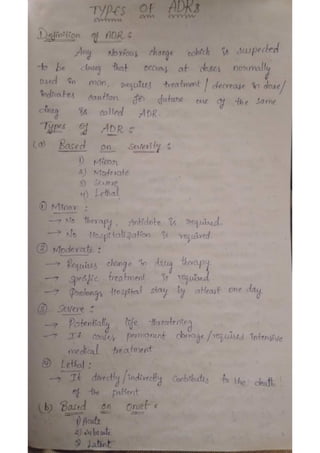 TYPES OF ADRs
Definition of ADR :
Any Noxious change which is suspected
to be drug that occurs at doses normally
used in man, requires treatment / decrease in dose /
indicates caution for future use of the same
drug is called ADR.
Types of ADR :
(a) Based on severity :
1) Minor
2) Moderate
3) Severe
4) Lethal
① Minor :
→ No therapy, Antidote is required.
→ No Hospitalization is required.
② Moderate :
→ Requires change in drug therapy
→ specific treatment is required
→ prolongs Hospital stay by atleast one day.
③ Severe :
→ Potentially life threatening
→ It causes permanent damage / requires intensive
medical treatment
④ Lethal :
→ It directly / indirectly contributes to the death
of the patient
(b) Based on Onset :
1) Acute
2) subacute
3) Latent